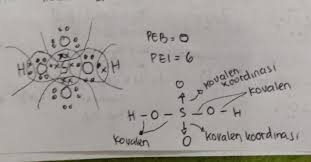 PEB = 0
PEI = 6
O
H O S O H
O
O
kovalen koordinasi
kovalen
H - O - S - O - H
kovalen
O
kovalen koordinasi